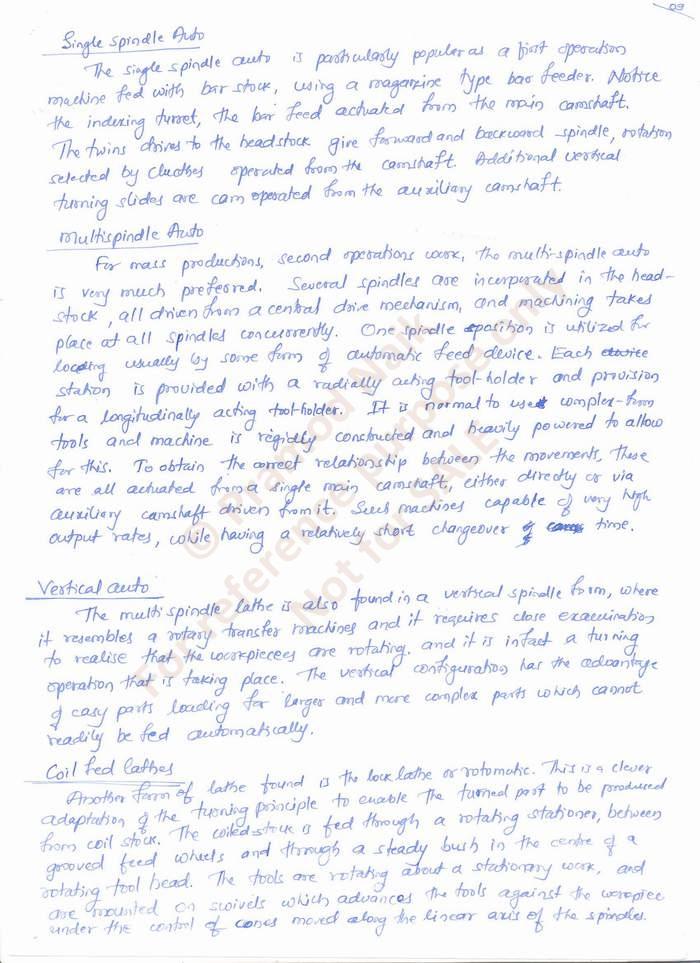 09
Single spindle Auto
The single spindle auto is particularly popular as a first operation
machine fed with bar stock, using a magazine type bar feeder. Notice
the indexing turret, the bar feed actuated from the main camshaft.
The twins drives to the headstock give forward and backward spindle, rotation
selected by clutches operated from the camshaft. Additional vertical
turning slides are cam operated from the auxiliary camshaft.
Multispindle Auto
For mass productions, second operations work, the multi-spindle auto
is very much preferred. Several spindles are incorporated in the head-
stock, all driven from a central drive mechanism, and machining takes
place at all spindles concurrently. One spindle position is utilized for
loading usually by some form of automatic feed device. Each
station is provided with a radially acting tool-holder and provision
for a longitudinally acting tool-holder. It is normal to use complex-form
tools and machine is rigidly constructed and heavily powered to allow
for this. To obtain the correct relationship between the movements, these
are all actuated from a single main camshaft, either directly or via
auxiliary camshaft driven from it. Such machines capable of very high
output rates, while having a relatively short changeover time.
Vertical auto
The multi spindle lathe is also found in a vertical spindle form, where
it resembles a rotary transfer machines and it requires close examination
to realise that the workpieces are rotating. and it is infact a turning
operation that is taking place. The vertical configuration has the advantage
of easy parts loading for larger and more complex parts which cannot
readily be fed automatically.
Coil fed lathes
Another form of lathe found is the lock lathe or rotomatic. This is a clever
adaptation of the turning principle to enable the turned part to be produced
from coil stock. The coiled stock is fed through a rotating stationer, between
grooved feed wheels and through a steady bush in the centre of a
rotating tool head. The tools are rotating about a stationary work, and
are mounted on swivels which advances the tools against the workpiece
under the control of cones moved along the linear axis of the spindles.
© Pramod Naik
For reference purpose only
Not for SALE